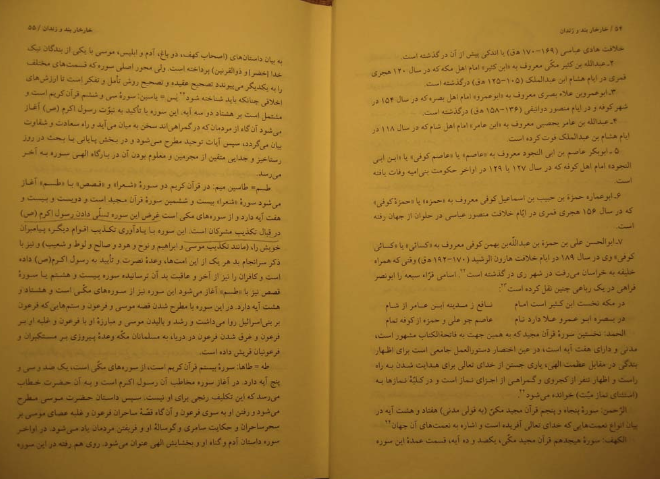 ۵۴ / خارخار بند و زندان
خلافت هادی عباسی (۱۶۹-۱۷۰ ه‍.ق) یا اندکی پیش از آن درگذشته است.
۲ـ عبدالله بن کثیر مکّی معروف به «ابن کثیر» امام اهل مکه که در سال ۱۲۰ هجری
قمری در ایام هشام ابن عبدالملک (۱۰۵-۱۲۵ ه‍.ق) درگذشته است.
۳ـ ابوعمروبن علاء بصری معروف به «ابوعمرو» امام اهل بصره که در سال ۱۵۴ در
شهر کوفه و در ایام منصور دوانیقی (۱۳۶-۱۵۸ ه‍.ق) درگذشته است.
۴ـ عبدالله بن عامر یحصبی معروف به «ابن عامر» امام اهل شام که در سال ۱۱۸ در
ایام هشام بن عبدالملک فوت کرده است.
۵ـ ابوبکر عاصم بن ابی النجود معروف به «عاصم» یا «عاصم کوفی» یا «ابن ابی
النجود» امام اهل کوفه که در سال ۱۲۷ یا ۱۲۹ در اواخر حکومت بنی‌امیه وفات یافته
است.
۶ـ ابوعماره حمزة بن حبیب بن اسماعیل کوفی معروف به «حمزه» یا «حمزهٔ کوفی»
که در سال ۱۵۶ هجری قمری در ایّام خلافت منصور عباسی در حلوان از جهان رفته
است.
۷ـ ابوالحسن علی بن حمزة بن عبدالله بن بهمن کوفی معروف به «کسائی» یا «کسائی
کوفی» وی در سال ۱۸۹ در ایام خلافت هارون الرشید (۱۷۰-۱۹۲ ه‍.ق) وقتی که همراه
خلیفه به خراسان می‌رفت در شهر ری در گذشته است. اسامی قرّاء سبعه را ابونصر
فراهی در یک رباعی چنین نقل کرده است:
در مکه نخست ابن کثیر است امام نافع ز مدینه ابن عامر از شام
در بصره ابو عمرو علا دارد نام عاصم چو علی و حمزه از کوفه تمام
الحمد: نخستین سورهٔ قرآن مجید که به همین جهت به فاتحةالکتاب مشهور است،
مدنی و دارای هفت آیه است، در عین اختصار دستورالعمل جامعی است برای اظهار
بندگی در مقابل عظمت الهی، یاری جستن از خدای تعالی برای هدایت شدن به راه
راست و اظهار تنفر از کجروی و گمراهی از اجزای نماز است و در کلیّهٔ نمازها به
(استثنای نماز میّت) خوانده می‌شود
الرّحمن: سورهٔ پنجاه و پنجم قرآن مجید مکّی (به قولی مدنی) هفتاد و هشت آیه در
بیان انواع نعمت‌هایی که خدای تعالی آفریده است و اشاره به نعمت‌های آن جهان
الکهف: سورهٔ هیجدهم قرآن مجید مکّی، یکصد و ده آیه، قسمت عمدهٔ این سوره
خارخار بند و زندان / ۵۵
به بیان داستان‌های (اصحاب کهف، دو باغ، آدم و ابلیس، موسی با یکی از بندگان نیک
خدا [خضر] و ذوالقرنین) پرداخته است. ولی محور اصلی سوره که قسمت‌های مختلف
را به یکدیگر می‌پیوندد تصحیح عقیده و تصحیح روش تأمل و تفکر است تا ارزش‌های
اخلاقی چندانکه باید شناخته شود «یس» یاسین: سورهٔ سی و ششم قرآن کریم است و
مشتمل است بر هشتاد دو سه آیه. این سوره با تأکید به نبوّت رسول اکرم (ص) آغاز
می‌شود آن‌گاه از مردمان که در گمراهی‌اند سخن به میان می‌آید و راه سعادت و شقاوت
بیان می‌گردد، سپس آیات توحید مطرح می‌شود و در بخش پایانی با بحث در روز
رستاخیز و جدایی متقین از مجرمین و معلوم بودن آن در بارگاه الهی سوره به آخر
می‌رسد.
طسم» طاسین میم: در قرآن کریم دو سورهٔ «شعراء» و «قصص» با «طسم» آغاز
می‌شود سورهٔ «شعراء» بیست و ششمین سورهٔ قرآن مجید است و دویست و بیست و
هفت آیه دارد و از سوره‌های مکی است غرض این سوره تسلّی دادن رسول اکرم (ص)
در قبال تکذیب مشرکان است. این سوره با یادآوری تکذیب اقوام دیگر، پیامبران
خویش را، (مانند تکذیب موسی و ابراهیم و نوح و هود و صالح و لوط و شعیب) و نیز با
ذکر سرانجام بد هر یک از این امت‌ها، وعدهٔ نصرت و تأیید به رسول اکرم(ص) داده
است و کافران را نیز از آخر و عاقبت بد آن ترسانیده سوره بیست و هشتم یا سورهٔ
قصص نیز با «طسم» آغاز می‌شود. این سوره نیز از سوره‌های مکّی است و هشتاد و
هشت آیه دارد. در این سوره با مطرح شدن قصه موسی و فرعون و ستم‌هایی که فرعون
بر بنی‌اسرائیل روا می‌داشت و رشد و بالیدن موسی و مبارزهٔ او با فرعون و غلبه او بر
فرعون و غرق شدن فرعون در دریا، به مسلمانان مکّه وعدهٔ پیروزی بر مستکبران و
فرعونیان قریش داده است.
طه = طاها: سورهٔ بیستم قرآن کریم است، از سوره‌های مکّی است، یک صد و سی و
پنج آیه دارد. در آغاز سوره مخاطب آن رسول اکرم است و به آن حضرت خطاب
می‌رسد که این تکالیف رنجی برای او نیست: سپس داستان حضرت موسی مطرح
می‌شود و رفتن او به سوی فرعون و آن گاه قصّهٔ ساحران فرعون و غلبه عصای موسی بر
سحر ساحران و حکایت سامری و گوسالهٔ او و فریفتن مردمان یاد می‌شود. در اواخر
سوره داستان آدم و گناه او و بخشایش الهی عنوان می‌شود. روی هم رفته در این سوره